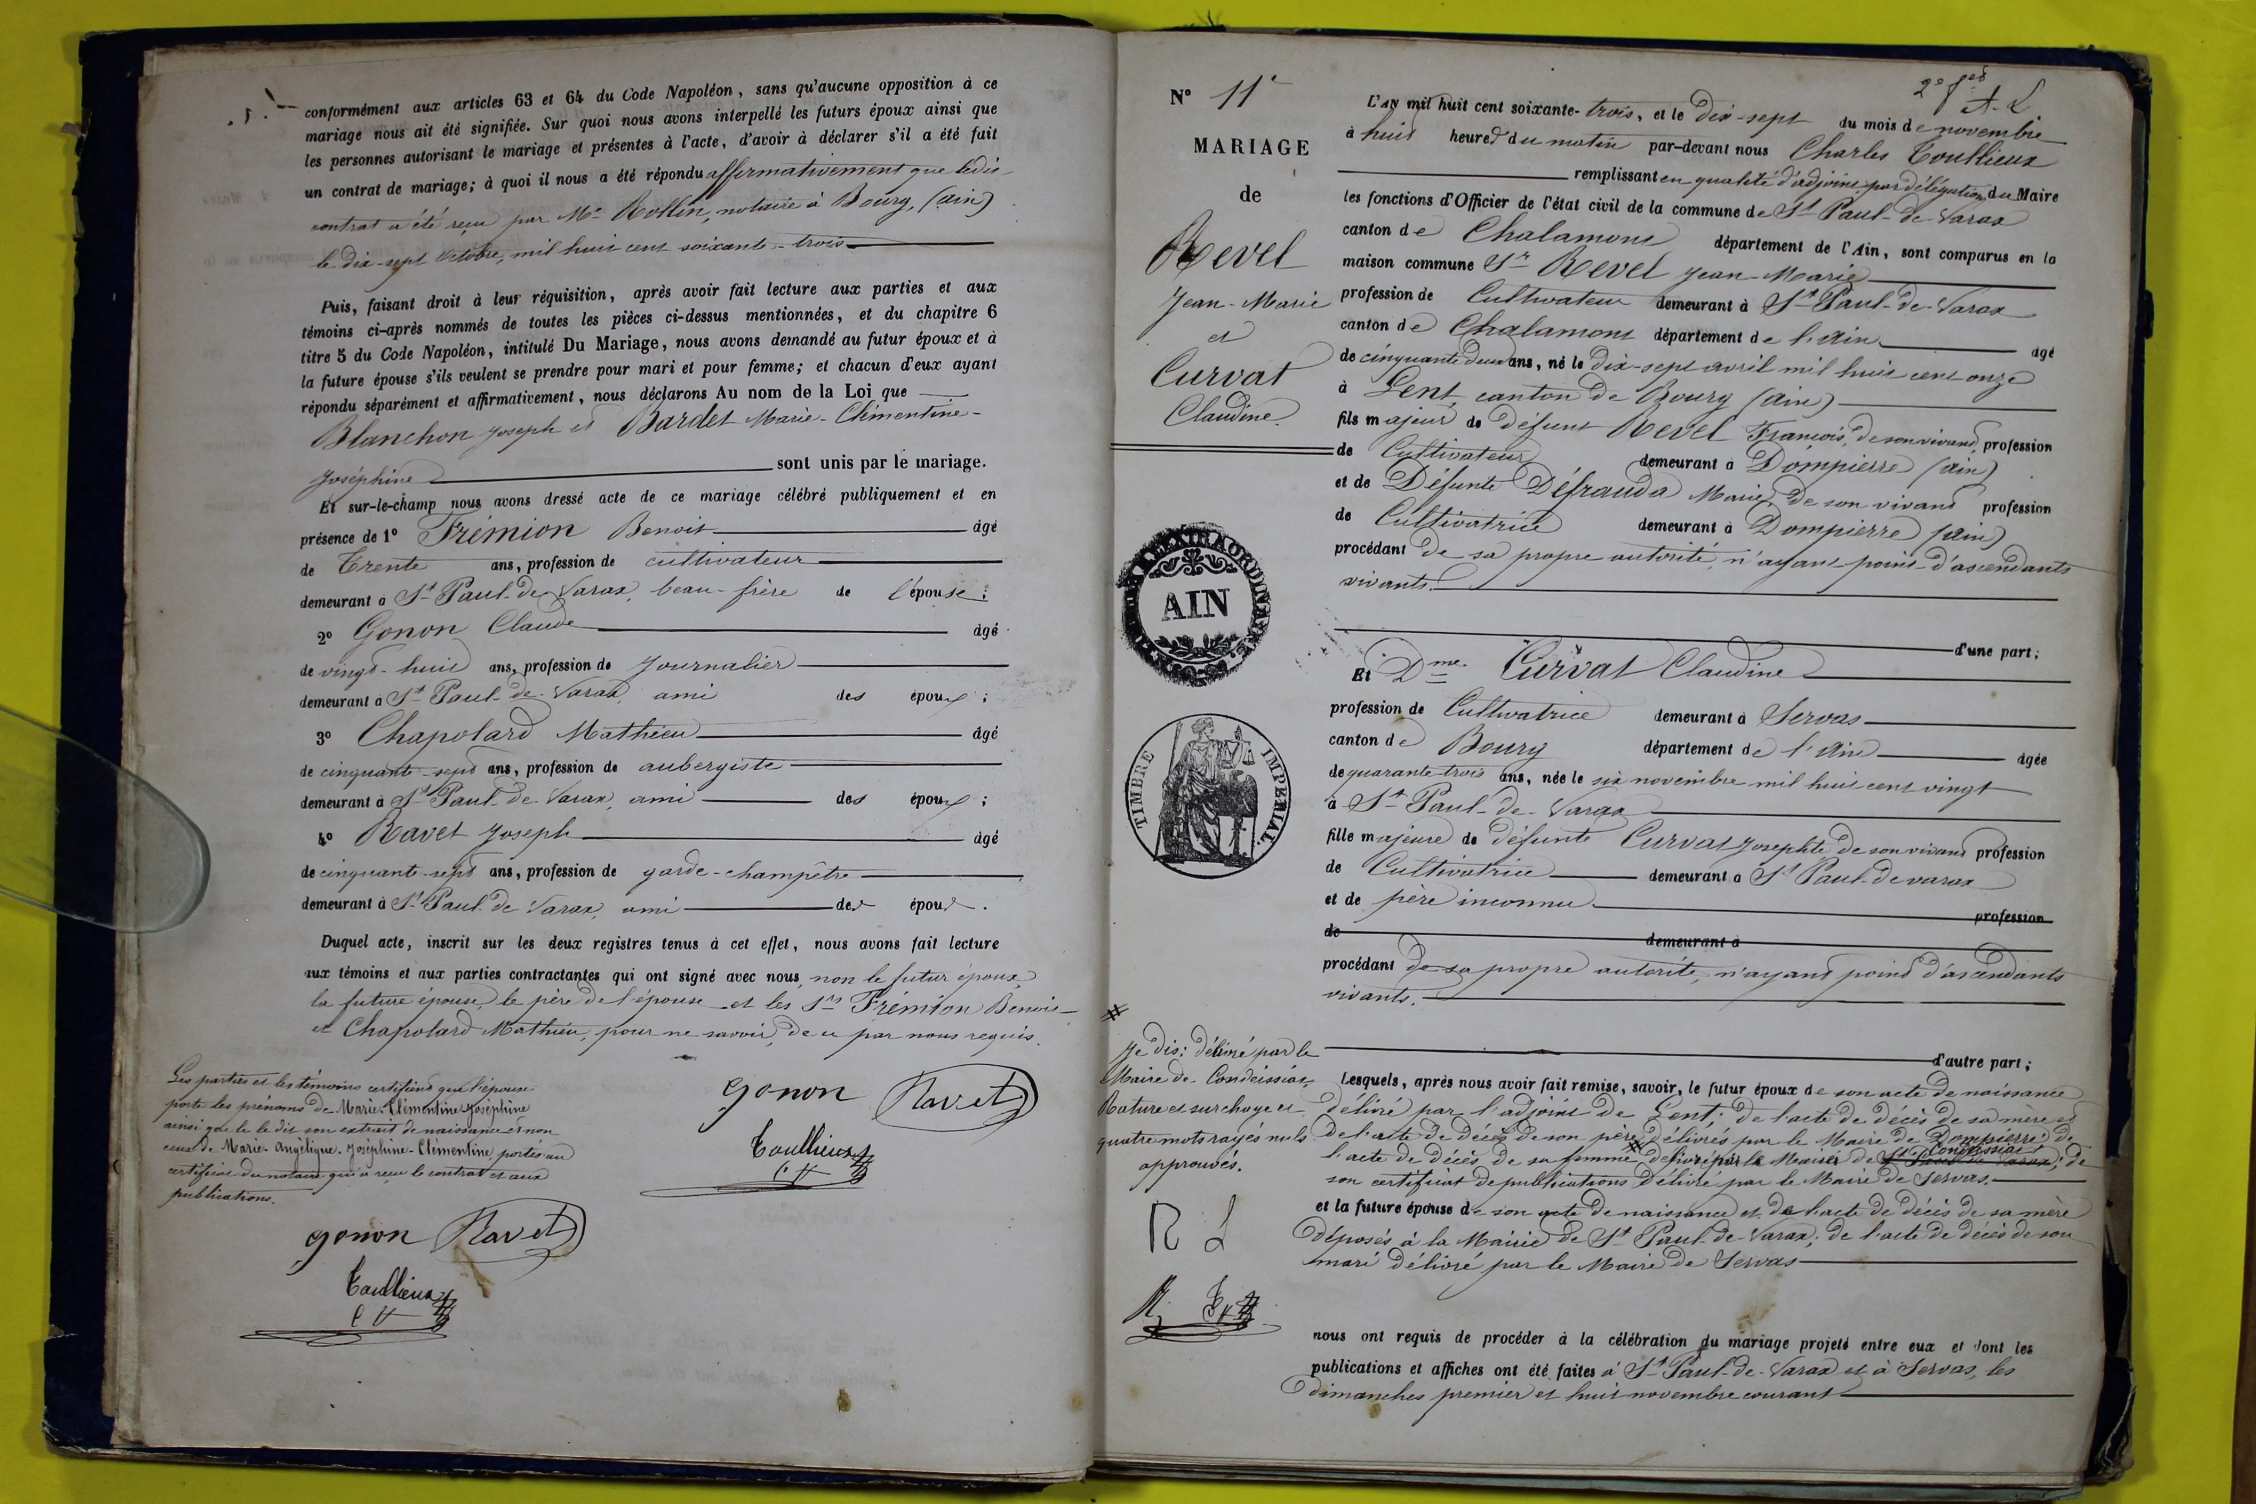 conformément aux articles 63 et 64 du Code Napoléon, sans qu'aucune opposition à ce
mariage nous ait été signifiée. Sur quoi nous avons interpellé les futurs époux ainsi que
les personnes autorisant le mariage et présentes à l'acte, d'avoir à déclarer s'il a été fait
un contrat de mariage; à quoi il nous a été répondu affirmativement que ledit
contrat a été reçu par Me Rollin, notaire à Bourg, (ain)
le dix-sept octobre, mil huit cent soixante-trois
Puis, faisant droit à leur réquisition, après avoir fait lecture aux parties et aux
témoins ci-après nommés de toutes les pièces ci-dessus mentionnées, et du chapitre 6
titre 5 du Code Napoléon, intitulé Du Mariage, nous avons demandé au futur époux et à
la future épouse s'ils veulent se prendre pour mari et pour femme; et chacun d'eux ayant
répondu séparément et affirmativement, nous déclarons Au nom de la Loi que
Blanchon Joseph et Bardet Marie-Clémentine-
Joséphine sont unis par le mariage.
Et sur-le-champ nous avons dressé acte de ce mariage célébré publiquement et en
présence de 1º Frémion Benoit âgé
de Trente ans, profession de cultivateur
demeurant à St Paul-de-Varax, beau-frère de l'épouse;
2º Gonon Claude âgé
de vingt-huit ans, profession de Journalier
demeurant à St Paul-de-Varax, ami des époux;
3º Chapolard Mathieu âgé
de cinquante-sept ans, profession de aubergiste
demeurant à St Paul-de-Varax, ami des époux;
4º Ravet Joseph âgé
de cinquante-sept ans, profession de garde-champêtre
demeurant à St Paul de Varax, ami des époux.
Duquel acte, inscrit sur les deux registres tenus à cet effet, nous avons fait lecture
aux témoins et aux parties contractantes qui ont signé avec nous, non le futur époux,
la future épouse, le père de l'épouse et les Srs Frémion Benoit
et Chapolard Mathieu, pour ne savoir, de ce par nous requis.
Les parties et les témoins certifient que l'épouse
porte les prénoms de Marie-Clémentine-Joséphine
ainsi que le dit son extrait de naissance et non
ceux de Marie-Angélique-Joséphine-Clémentine, portés au
certificat du notaire qui a reçu le contrat et aux
publications.
Gonon Ravet
Toullieux
Gonon Ravet
Toullieux
2e fet
A. L
Nº 11e
MARIAGE
de
Revel
Jean-Marie
et
Curvat
Claudine.
AIN
TIMBRE IMPERIAL.
L'an mil huit cent soixante-trois, et le dix-sept du mois de novembre
à huit heures du matin par-devant nous Charles Toullieux
remplissant en qualité d'adjoint par délégation du Maire
les fonctions d'Officier de l'état civil de la commune de St Paul-de-Varax
canton de Chalamont département de l'Ain, sont comparus en la
maison commune Sr Revel Jean-Marie
profession de Cultivateur demeurant à St Paul-de-Varax
canton de Chalamont département de l'ain âgé
de cinquante deux ans, né le dix-sept avril mil huit cent onze
à Lent, canton de Bourg (ain)
fils majeur de défunt Revel François, de son vivant profession
de Cultivateur demeurant à Dompierre (ain)
et de Défunte Défrauda Marie, de son vivant profession
de Cultivatrice demeurant à Dompierre (ain)
procédant de sa propre autorité, n'ayant point d'ascendants
vivants.
d'une part;
Et Dme Curvat Claudine
profession de Cultivatrice demeurant à Servas
canton de Bourg département de l'ain âgée
de quarante-trois ans, née le six novembre mil huit cent vingt
à St Paul-de-Varax
fille majeure de défunte Curvat Josephte de son vivant profession
de Cultivatrice demeurant à St Paul-de-varax
et de père inconnu profession
de demeurant à
procédant de sa propre autorité, n'ayant point d'ascendants
vivants.
d'autre part;
Lesquels, après nous avoir fait remise, savoir, le futur époux de son acte de naissance
délivré par l'adjoint de Lent; de l'acte de décès de sa mère et
de l'acte de décès de son père, délivrés par le Maire de Dompierre; de
l'acte de décès de sa femme # délivré par le Maire de St Paul de Varax; de
Condeissiat
son certificat de publications délivré par le Maire de Servas.
et la future épouse de son acte de naissance et de l'acte de décès de sa mère
déposés à la Mairie de St Paul-de-Varax; de l'acte de décès de son
mari délivré par le Maire de Servas
nous ont requis de procéder à la célébration du mariage projeté entre eux et dont les
publications et affiches ont été faites à St Paul-de-Varax et à Servas, les
dimanches premier et huit novembre courant
#
Je dis: délivré par le
Maire de Condeissiat,
Rature et surcharge et
quatre mots rayés nuls
approuvés.